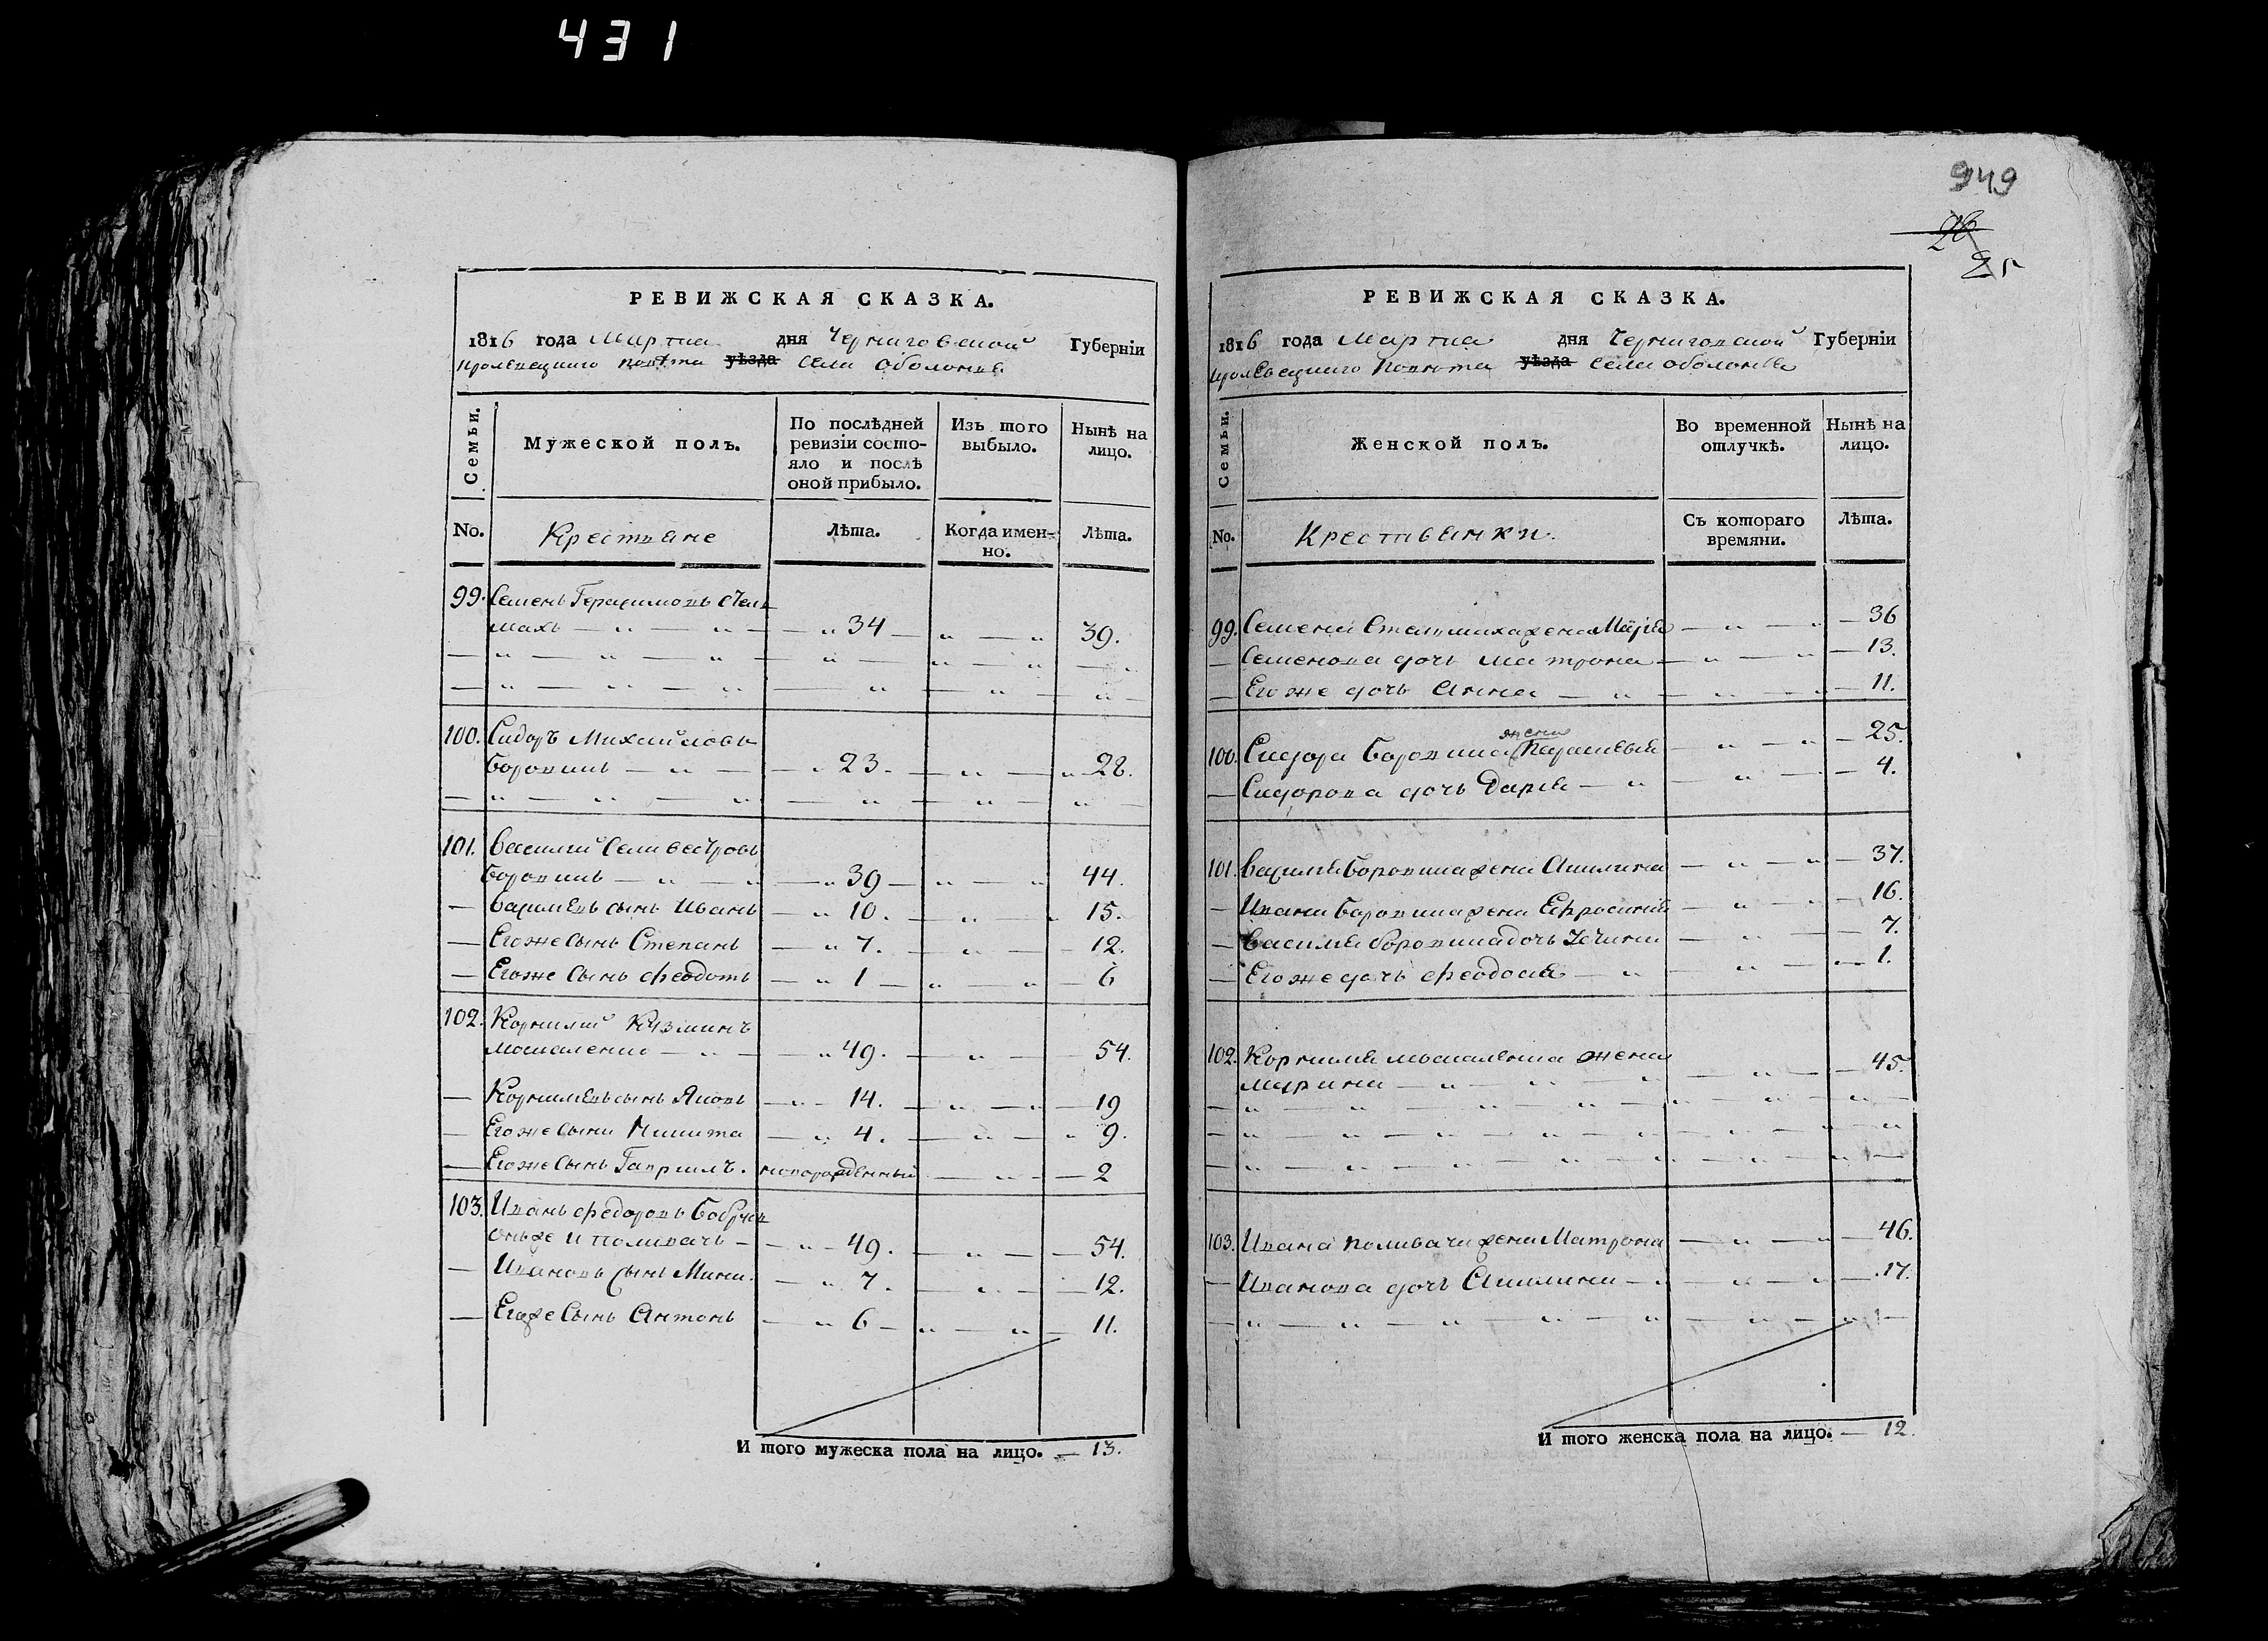 431
РЕВИЖСКАЯ СКАЗКА.
1816 года Марта дня Черниговской Губерніи
Кролевецкого Повѣта уѣзда Села Оболонья
Семьи.
Мужеской полъ.
По послѣдней ревизіи состо-
яло и послѣ
оной прибыло.
Изъ того выбыло.
Нынѣ на лицо.
No.
Крестьяне
Лѣта.
Когда имен-
но.
Лѣта.
99. Семенъ Герасимовъ Стел
махъ — 34 — 39.
100. Сидоръ Михайловъ
— 23. — 28.
101. Василий Селивестровъ
— 39 — 44.
— Васильевъ сынъ Иванъ — 10. — 15.
— Егоже сынъ Степанъ — 7. — 12.
— Егоже сынъ Феодотъ — 1 — 6
102. Корнилий Кузминъ
Москаленко — 49. — 54.
— Корнилиевъ сынъ Яковъ — 14. — 19
— Егоже сынъ Никита — 4. — 9.
— Егоже сынъ Гаврилъ. новорожденный — 2
103. Иванъ Федоровъ
онже и поливачъ — 49. — 54.
— Ивановъ сынъ Мина. — 7. — 12.
— Егоже сынъ Антонъ — 6 — 11.
И того мужеска пола на лицо. — 13.
949
РЕВИЖСКАЯ СКАЗКА.
1816 года Марта дня Черниговской Губерніи
Кролевецкого Повѣта уѣзда Села Оболонья
Семьи.
Женской полъ.
Во временной отлучкѣ.
Нынѣ на лицо.
No.
Крестьянки.
Съ котораго времяни.
Лѣта.
99. Семена Стельмаха жена Марія — 36
— Семенова дочь Матрона — 13.
— Егоже дочь Анна — 11.
жена
100. Сидора — 25.
— Сидорова дочь Дарія — 4.
101. Василія жена Акилина — 37.
— Ивана жена Ефросинія — 16.
— Василія дочь — 7.
— Егоже дочь Феодосія — 1.
102. Корнилія Москаленка жена
Марина — 45.
103. Ивана поливача жена Матрона — 46.
— Иванова дочь Акилина — 17.
И того женска пола на лицо. — 12.